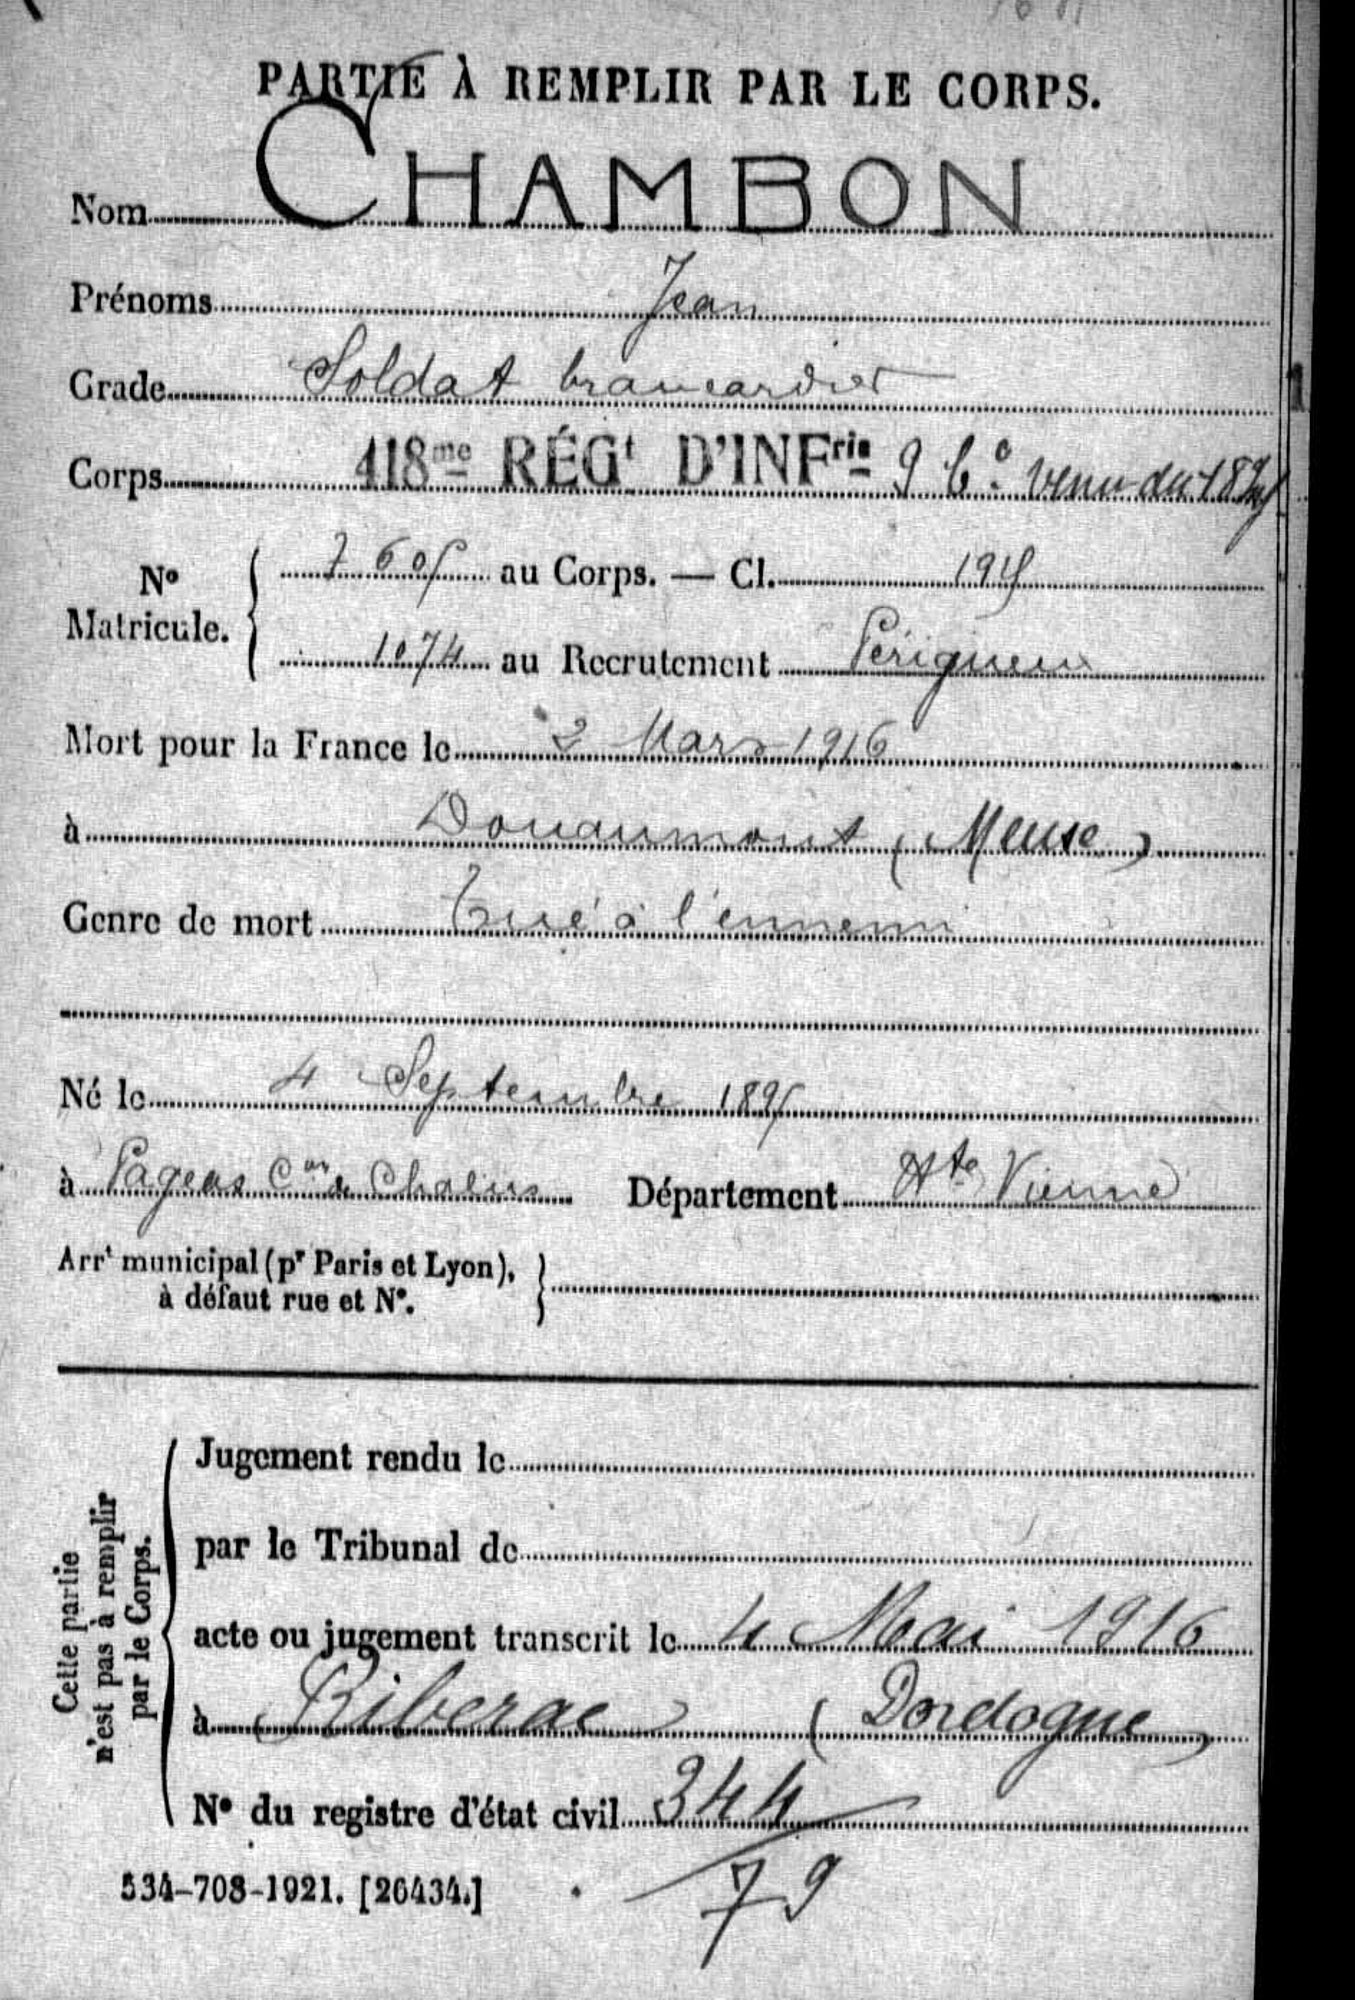 PARTIE À REMPLIR PAR LE CORPS.
Nom CHAMBON
Prénoms Jean
Grade Soldat brancardier
Corps 418me RÉGt D'INFrie 9 Cie venu du 18
No Matricule. 7605 au Corps. — Cl. 1915
1074 au Recrutement Périgueux
Mort pour la France le 2 Mars 1916
à Douaumont (Meuse)
Genre de mort Tué à l'ennemi
Né le 4 Septembre 1895
à Pageas Con de Chalus Département Hte Vienne
Arrt municipal (pr Paris et Lyon),
à défaut rue et No.
Cette partie
n'est pas à remplir
par le Corps.
Jugement rendu le
par le Tribunal de
acte ou jugement transcrit le 4 Mai 1916
à Riberac (Dordogne)
No du registre d'état civil 344
79
534-708-1921. [26434.]